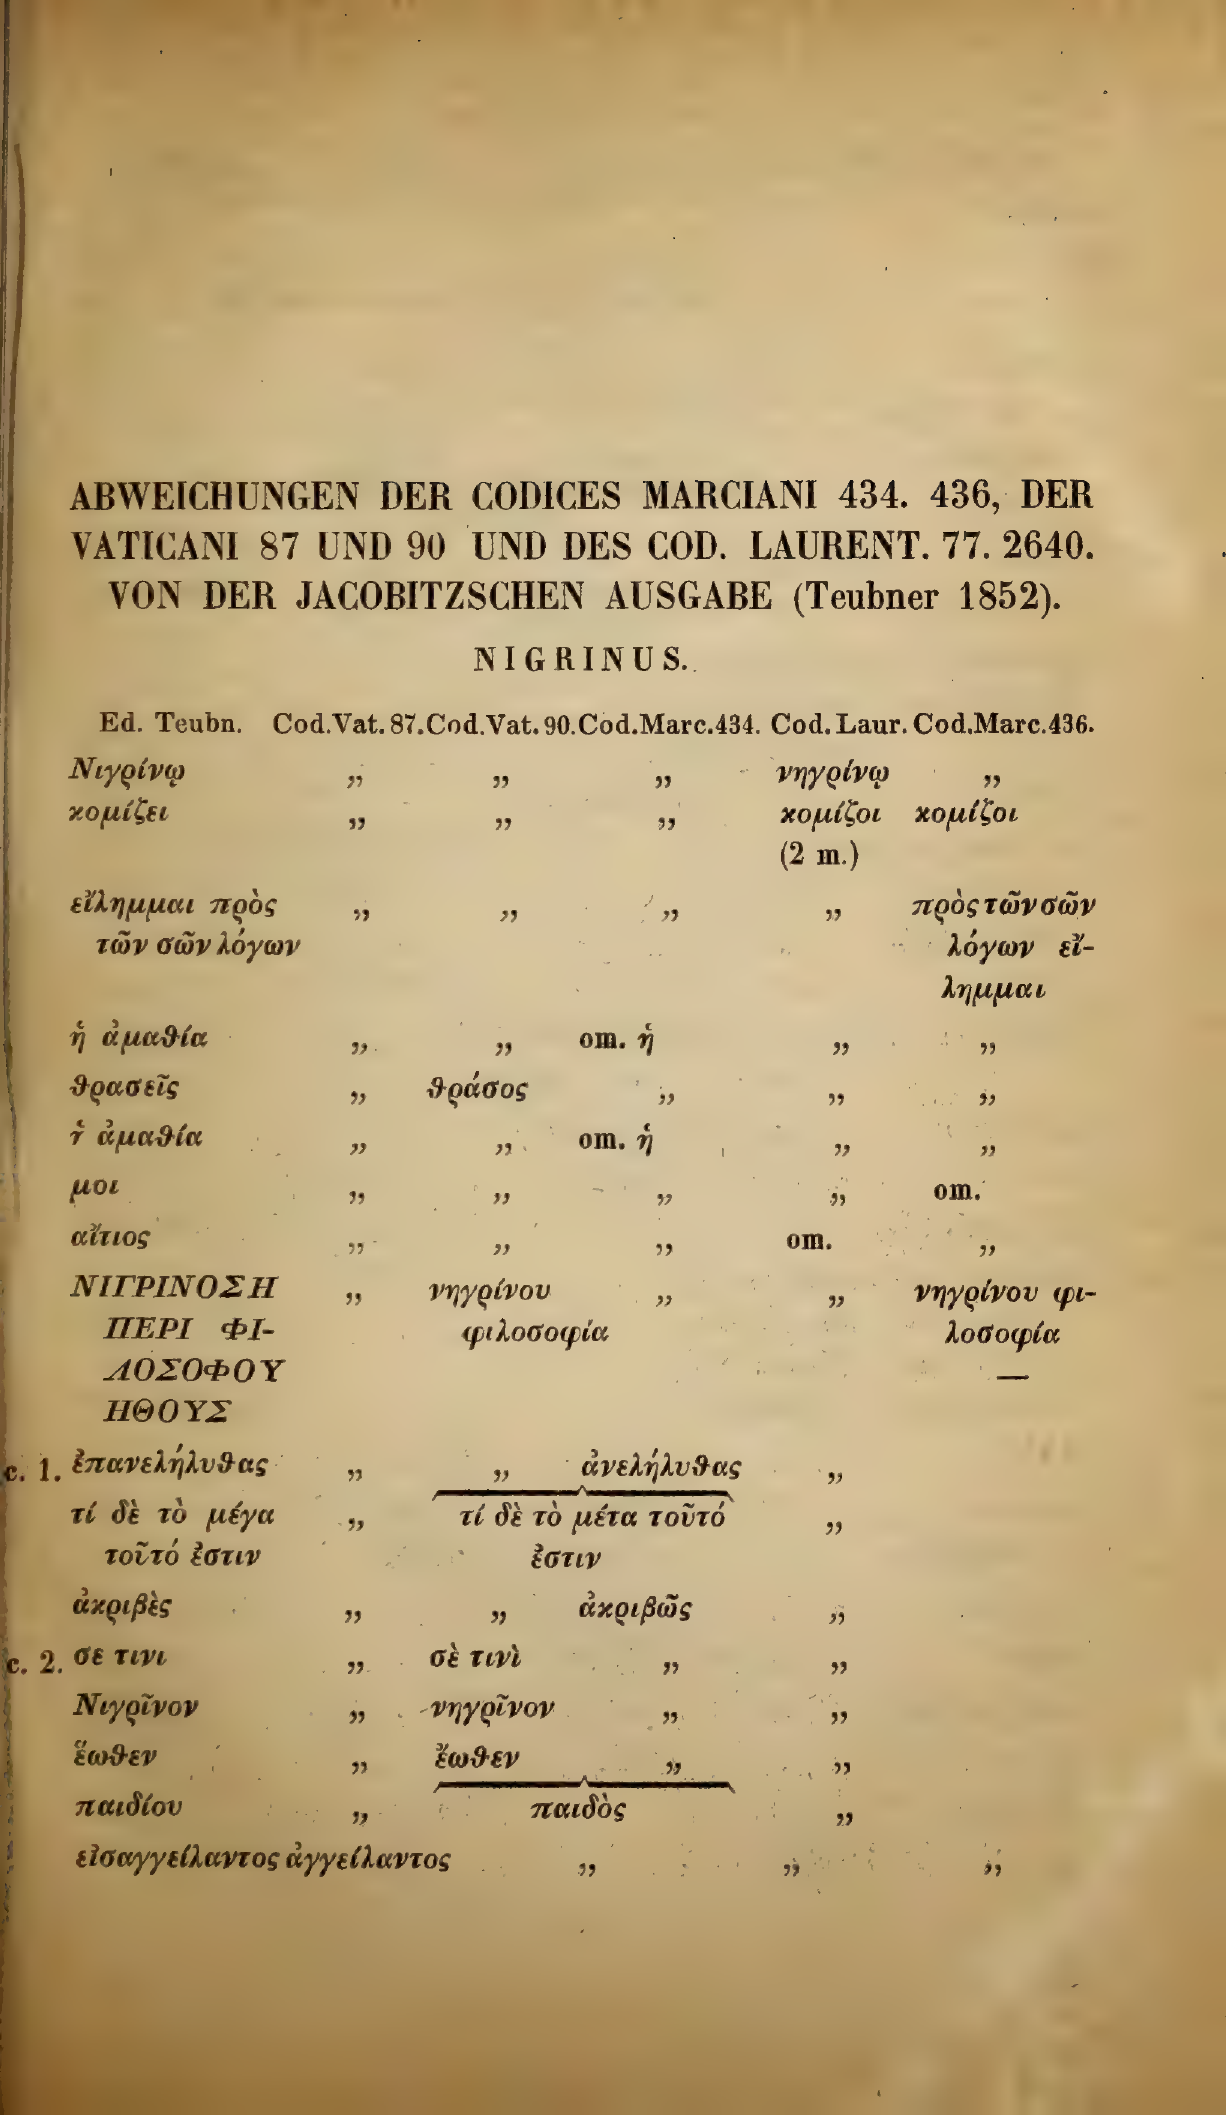 ABWEICHUNGEN DER CODICES MARCIANI 434. 436, DER
VATICANI 87 UND 90 UND DES COD. LAURENT. 77. 2640.
VON DER JACOBITZSCHEN AUSGABE (Teubner 1852).
NIGRINUS.
Ed. Teubn. Cod. Vat. 87. Cod. Vat. 90. Cod. Marc. 434. Cod. Laur. Cod. Marc. 436.
Νιγρίνῳ „ „ „ νηγρίνῳ „
κομίζει „ „ „ κομίζοι κομίζοι
(2 m.)
εἴλημμαι πρὸς „ „ „ „ πρὸς τῶν σῶν
τῶν σῶν λόγων λόγων εἴ-
λημμαι
ἡ ἀμαθία „ „ om. ἡ „ „
θρασεῖς „ θράσος „ „ „
ἡ ἀμαθία „ „ om. ἡ „ „
μοι „ „ „ „ om.
αἴτιος „ „ „ om. „
ΝΙΓΡΙΝΟΣ Η „ νηγρίνου „ „ νηγρίνου φι-
ΠΕΡΙ ΦΙ- φιλοσοφία λοσοφία
ΛΟΣΟΦΟΥ —
ΗΘΟΥΣ
c. 1. ἐπανελήλυθας „ „ ἀνελήλυθας „
τί δὲ τὸ μέγα „ τί δὲ τὸ μέτα τοῦτό „
τοῦτό ἐστιν ἐστιν
ἀκριβὲς „ „ ἀκριβῶς „
c. 2. σε τινι „ σὲ τινὶ „ „
Νιγρῖνον „ νηγρῖνον „ „
ἕωθεν „ ἔωθεν „ „
παιδίου „ παιδὸς „
εἰσαγγείλαντος ἀγγείλαντος „ „ „